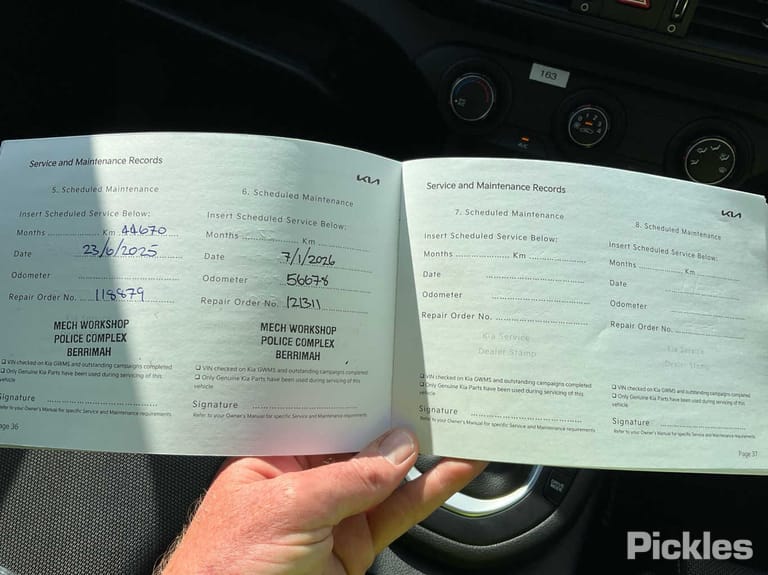 163
A/C
0 1 2 3 4
Service and Maintenance Records
KIA
5. Scheduled Maintenance
Insert Scheduled Service Below:
Months .......... Km 44670
Date 23/6/2025
Odometer
Repair Order No. 118879
MECH WORKSHOP
POLICE COMPLEX
BERRIMAH
VIN checked on Kia GWMS and outstanding campaigns completed
Only Genuine Kia Parts have been used during servicing of this
vehicle
Signature
Refer to your Owner's Manual for specific Service and Maintenance requirements
Page 36
6. Scheduled Maintenance
Insert Scheduled Service Below:
Months .......... Km
Date 7/1/2026
Odometer 56678
Repair Order No. 121311
MECH WORKSHOP
POLICE COMPLEX
BERRIMAH
VIN checked on Kia GWMS and outstanding campaigns completed
Only Genuine Kia Parts have been used during servicing of this
vehicle
Signature
Refer to your Owner's Manual for specific Service and Maintenance requirements
Service and Maintenance Records
KIA
7. Scheduled Maintenance
Insert Scheduled Service Below:
Months .......... Km
Date
Odometer
Repair Order No.
Kia Service
Dealer Stamp
VIN checked on Kia GWMS and outstanding campaigns completed
Only Genuine Kia Parts have been used during servicing of this
vehicle
Signature
Refer to your Owner's Manual for specific Service and Maintenance requirements
8. Scheduled Maintenance
Insert Scheduled Service Below:
Months .......... Km
Date
Odometer
Repair Order No.
Kia Service
Dealer Stamp
VIN checked on Kia GWMS and outstanding campaigns completed
Only Genuine Kia Parts have been used during servicing of this
vehicle
Signature
Refer to your Owner's Manual for specific Service and Maintenance requirements
Page 37
DRIVE
MODE
Pickles